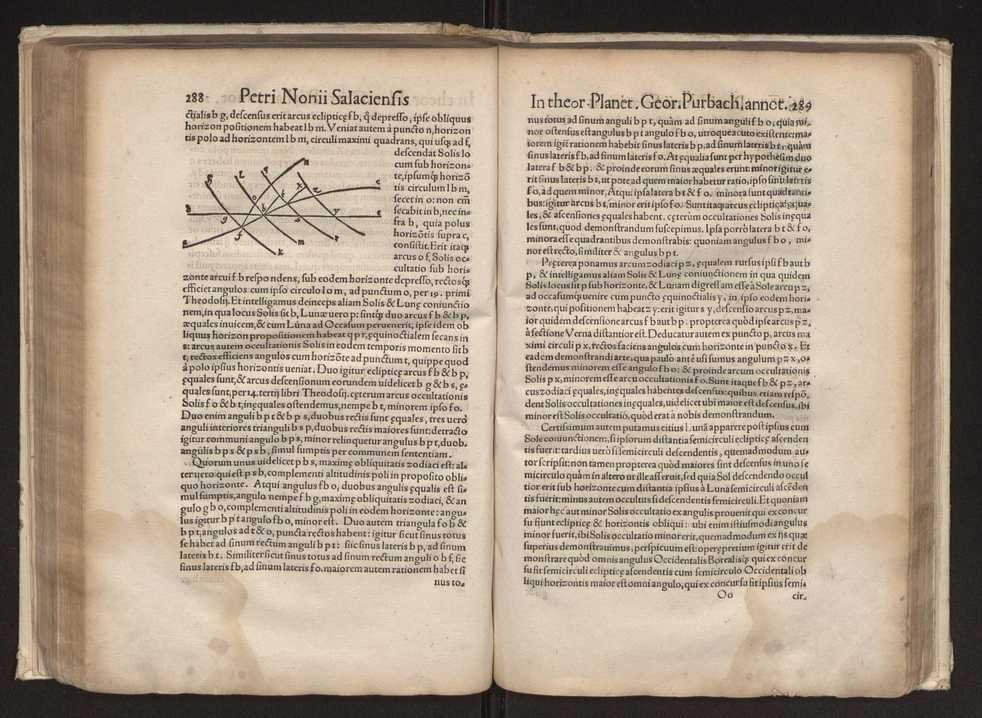 288 Petri Nonii Salaciensis
ctialis b g, descensus erit arcus eclipticę f b, q̃ depresso, ipse obliquus
horizon positionem habeat l b m. Veniat autem à puncto n, horizon
tis polo ad horizontem l b m, circuli maximi quadrans, qui usq; ad f,
descendat Solis lo
cum sub horizon-
te, ipsumq; horizõ
tis circulum l b m,
secet in o: non em̃
secabit in b, nec in-
fra b, quia polus
horizõtis supra c,
consistit. Erit itaq;
arcus o f, Solis oc-
cultatio sub hori-
zonte arcui f b respondens, sub eodem horizonte depresso, rectosq;
efficiet angulos cum ipso circulo l o m, ad punctum o, per 19. primi
Theodosij. Et intelligamus deinceps aliam Solis & Lunę coniunctio
nem, in qua locus Solis sit b, Lunæ uero p: sintq; duo arcus f b & b p,
æquales inuicem, & cum Luna ad Occasum peruenerit, ipse idem ob
liquus horizon propositionem habeat q p r, equinoctialem secans in
s: arcus autem occultationis Solis in eodem temporis momento sit b
t, rectos efficiens angulos cum horizõte ad punctum t, quippe quod
à polo ipsius horizontis ueniat. Duo igitur eclipticę arcus f b & b p,
ęquales sunt, & arcus descensionum eorundem uidelicet b g & b s, ę-
quales sunt, per 14. tertij libri Theodosij. cęterum arcus occultationis
Solis f o & b t, inęquales ostendemus, nempe b t, minorem ipso f o.
Duo enim anguli b p t & b p s, duobus rectis sunt ęquales, tres uerò
anguli interiores trianguli b s p, duobus rectis maiores sunt: detracto
igitur communi angulo b p s, minor relinquetur angulus b p t, duob.
angulis b p s & p s b, simul sumptis per communem sententiam.
Quorum unus uidelicet p b s, maximę obliquitatis zodiaci est: al-
ter uero qui est p s b, complementi altitudinis poli in proposito obli-
quo horizonte. Atqui angulus f b o, duobus angulis ęqualis est si-
mul sumptis, angulo nempe f b g, maximę obliquitatis zodiaci, & an
gulo g b o, complementi altitudinis poli in eodem horizonte: angu-
lus igitur b p t angulo f b o, minor est. Duo autem triangula f o b &
b p t, angulos ad t & o, puncta rectos habent: igitur sicut sinus totus
se habet ad sinum rectum anguli b p t: sic sinus lateris b p, ad sinum
lateris b t. Similiter sicut sinus totus ad sinum rectum anguli o b f, sic
sinus lateris f b, ad sinum lateris f o. maiorem autem rationem habet si
nus to-
In theor. Planet. Geor. Purbach. annot. 289
nus totus ad sinum anguli b p t, quàm ad sinum anguli f b o, quia mi-
nor ostensus est angulus b p t angulo f b o, utroque acuto existente: ma-
iorem igit̃ rationem habebit sinus lateris b p, ad sinum lateris b t, quàm
sinus lateris f b, ad sinum lateris f o. At ęqualia sunt per hypothesim duo
latera f b & b p. & proinde eorum sinus æquales erunt: minor igitur e-
rit sinus lateris b t, ut pote ad quem maior habetur ratio, ipso sinu lateris
f o, ad quem minor. Atqui ipsa latera b t & f o, minora sunt quadranti-
bus: igitur arcus b t, minor erit ipso f o. Sunt itaq; arcus eclipticę ęqua-
les, & ascensiones ęquales habent. cęterùm occultationes Solis inęqua
les sunt, quod demonstrandum suscepimus. Ipsa porrò latera b t & f o,
minora esse quadrantibus demonstrabis: quoniam angulus f b o, mi-
nor est recto, similiter & angulus b p t.
Pręterea ponamus arcum zodiaci p z, ęqualem rursus ipsi f b aut b
p, & intelligamus aliam Solis & Lunę coniunctionem in qua quidem
Solis locus sit p sub horizonte, & Lunam digressam esse à Sole arcu p z,
ad occasumq; uenire cum puncto ęquinoctialis y, in ipso eodem hori-
zonte, qui positionem habeat z y: erit igitur s y, descensio arcus p z, ma-
ior quidem descensione arcus f b aut b p. propterea quòd ipse arcus p z,
à sectione Verna distantior est. Deducatur autem ex puncto p, arcus ma
ximi circuli p x, rectos faciens angulos cum horizonte in puncto x. Et
eadem demonstrandi arte, qua paulò antè usi sumus angulum p z x, o-
stendemus minorem esse angulo f b o: & proinde arcum occultationis
Solis p x, minorem esse arcu occultationis f o. Sunt itaque f b & p z, ar-
cus zodiaci ęquales, inęquales habentes descensus: quibus etiam respõ-
dent Solis occultationes inęquales, uidelicet ubi maior est descensus, ibi
minor est Solis occultatio, quòd erat à nobis demonstrandum.
Certissimum autem putamus citius Lunã apparere post ipsius cum
Sole coniunctionem, si ipsorum distantia semicirculi eclipticę ascenden
tis fuerit: tardius uerò si semicirculi descendentis, quemadmodum au-
tor scripsit: non tamen propterea quòd maiores sint descensus in uno se
micirculo quàm in altero ut ille asseruit, sed quia Sol descendendo occul
tior erit sub horizonte cum distantia ipsius à Luna semicirculi ascẽden
tis fuerit: minus autem occultus si descendentis semicirculi. Et quoniam
maior hęc aut minor Solis occultatio ex angulis prouenit qui ex concur
su fiunt eclipticę & horizontis obliqui: ubi enim istiusmodi angulus
minor fuerit, ibi Solis occultatio minor erit, quemadmodum ex ijs quæ
superius demonstrauimus, perspicuum est: operępretium igitur erit de
monstrare quòd omnis angulus Occidentalis Borealisq; qui ex concur
su fit semicirculi eclipticę ascendentis cum semicirculo Occidentali ob
liqui horizontis maior est omni angulo, qui ex concursu fit ipsius semi-
Oo cir-